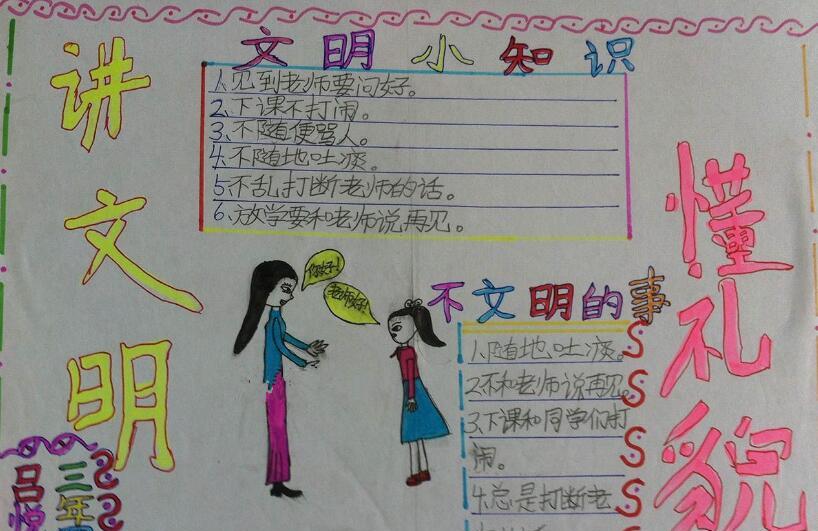 讲文明
文明小知识
1、见到老师要问好。
2、下课不打闹。
3、不随便骂人。
4、不随地吐痰。
5、不乱打断老师的话。
6、放学要和老师说再见。
懂礼貌
你好!
老师好!
不文明的事
1、随地吐痰。
2、不和老师说再见。
3、下课和同学们打
闹。
4、总是打断老
三年
吕悦